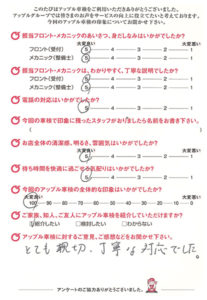 このたびはアップル車検をご利用いただきありがとうございました。
アップルグループでは皆さまのお声をサービスの向上に役立てたいと考えております。
今回のアップル車検の印象についてお聞かせ下さい。
担当フロント・メカニックのあいさつ、身だしなみはいかがでしたか?
大変良い 大変悪い
フロント(受付) 5 4 3 2 1
メカニック(整備士) 5 4 3 2 1
担当フロント・メカニックは、わかりやすく、丁寧な説明でしたか?
フロント(受付) 5 4 3 2 1
メカニック(整備士) 5 4 3 2 1
電話の対応はいかがでしたか?
5 4 3 2 1
今回の車検で印象に残ったスタッフがおりましたら名前をお書き下さい。
( )
お店全体の清潔感、明るさ、雰囲気はいかがでしたか?
5 4 3 2 1
待ち時間を快適に過ごせる店作りはいかがでしたか?
5 4 3 2 1
今回のアップル車検の全体的な印象はいかがでしたか?
大変良い 大変悪い
100 90 80 70 60 50 40 30 20 10 0
ご家族、知人、ご友人にアップル車検を紹介していただけますか?
紹介したい 検討したい わからない
アップル車検に対するご意見、ご感想などをお聞かせ下さい。
とても親切、丁寧な対応でした。
アンケートのご協力ありがとうございました。